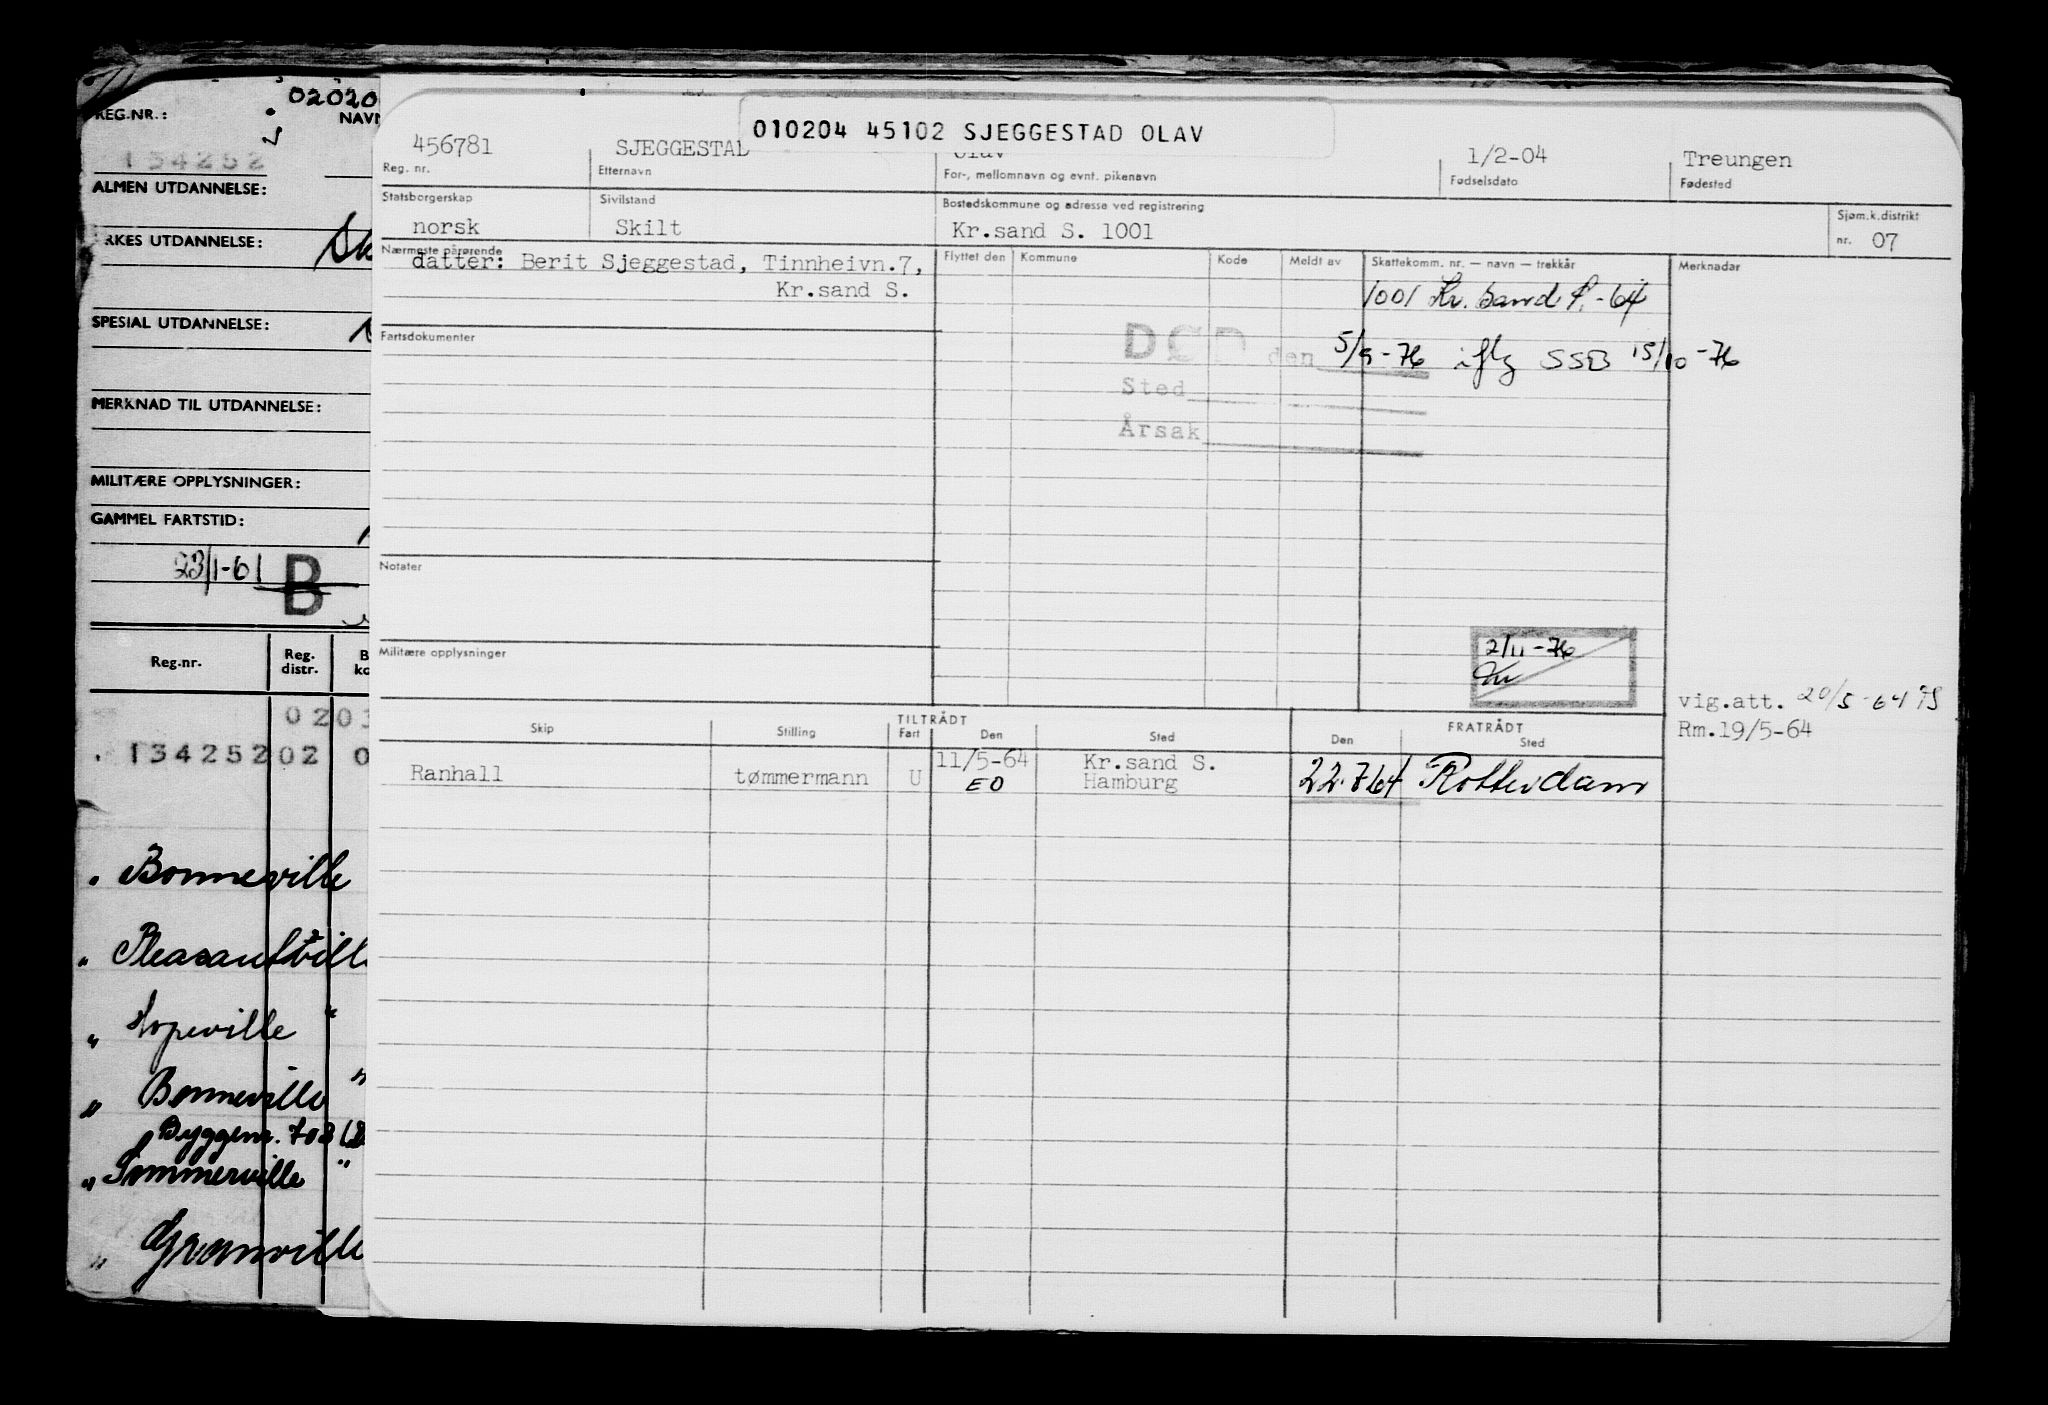 02020
REG.NR.:
NAVN
134252
ALMEN UTDANNELSE:
RKES UTDANNELSE:
SPESIAL UTDANNELSE:
MERKNAD TIL UTDANNELSE:
MILITÆRE OPPLYSNINGER:
GAMMEL FARTSTID:
23/1-61 B
Reg.nr.
Reg. distr.
B
ko
020
134252 02 0
" Bonneville
" Pleasantville
" Hopeville "
" Bonneville "
Byggenr. 703
" Sommerville "
" Granville
010204 45102 SJEGGESTAD OLAV
456781 SJEGGESTAD Olav 1/2-04 Treungen
Reg. nr. Etternavn For-, mellomnavn og evnt. pikenavn Fødselsdato Fødested
Statsborgerskap Sivilstand Bostedskommune og adresse ved registrering Sjøm.k.distrikt
norsk Skilt Kr.sand S. 1001 nr. 07
Nærmeste pårørende Flyttet den Kommune Kode Meldt av Skattekomm. nr. — navn — trekkår Merknadar
datter: Berit Sjeggestad, Tinnheivn.7,
Kr.sand S.
1001 Kr. sand S. -64
Fartsdokumenter
DØD den 5/9-76 iflg SSB 15/10-76
Sted
Årsak
Notater
2/11-76
Militære opplysninger
vig.att. 20/5-64
Rm.19/5-64
TILTRÅDT FRATRÅDT
Skip Stilling Fart Den Sted Den Sted
11/5-64 Kr.sand S.
Ranhall tømmermann U EO Hamburg 22.7.64 Rotterdam